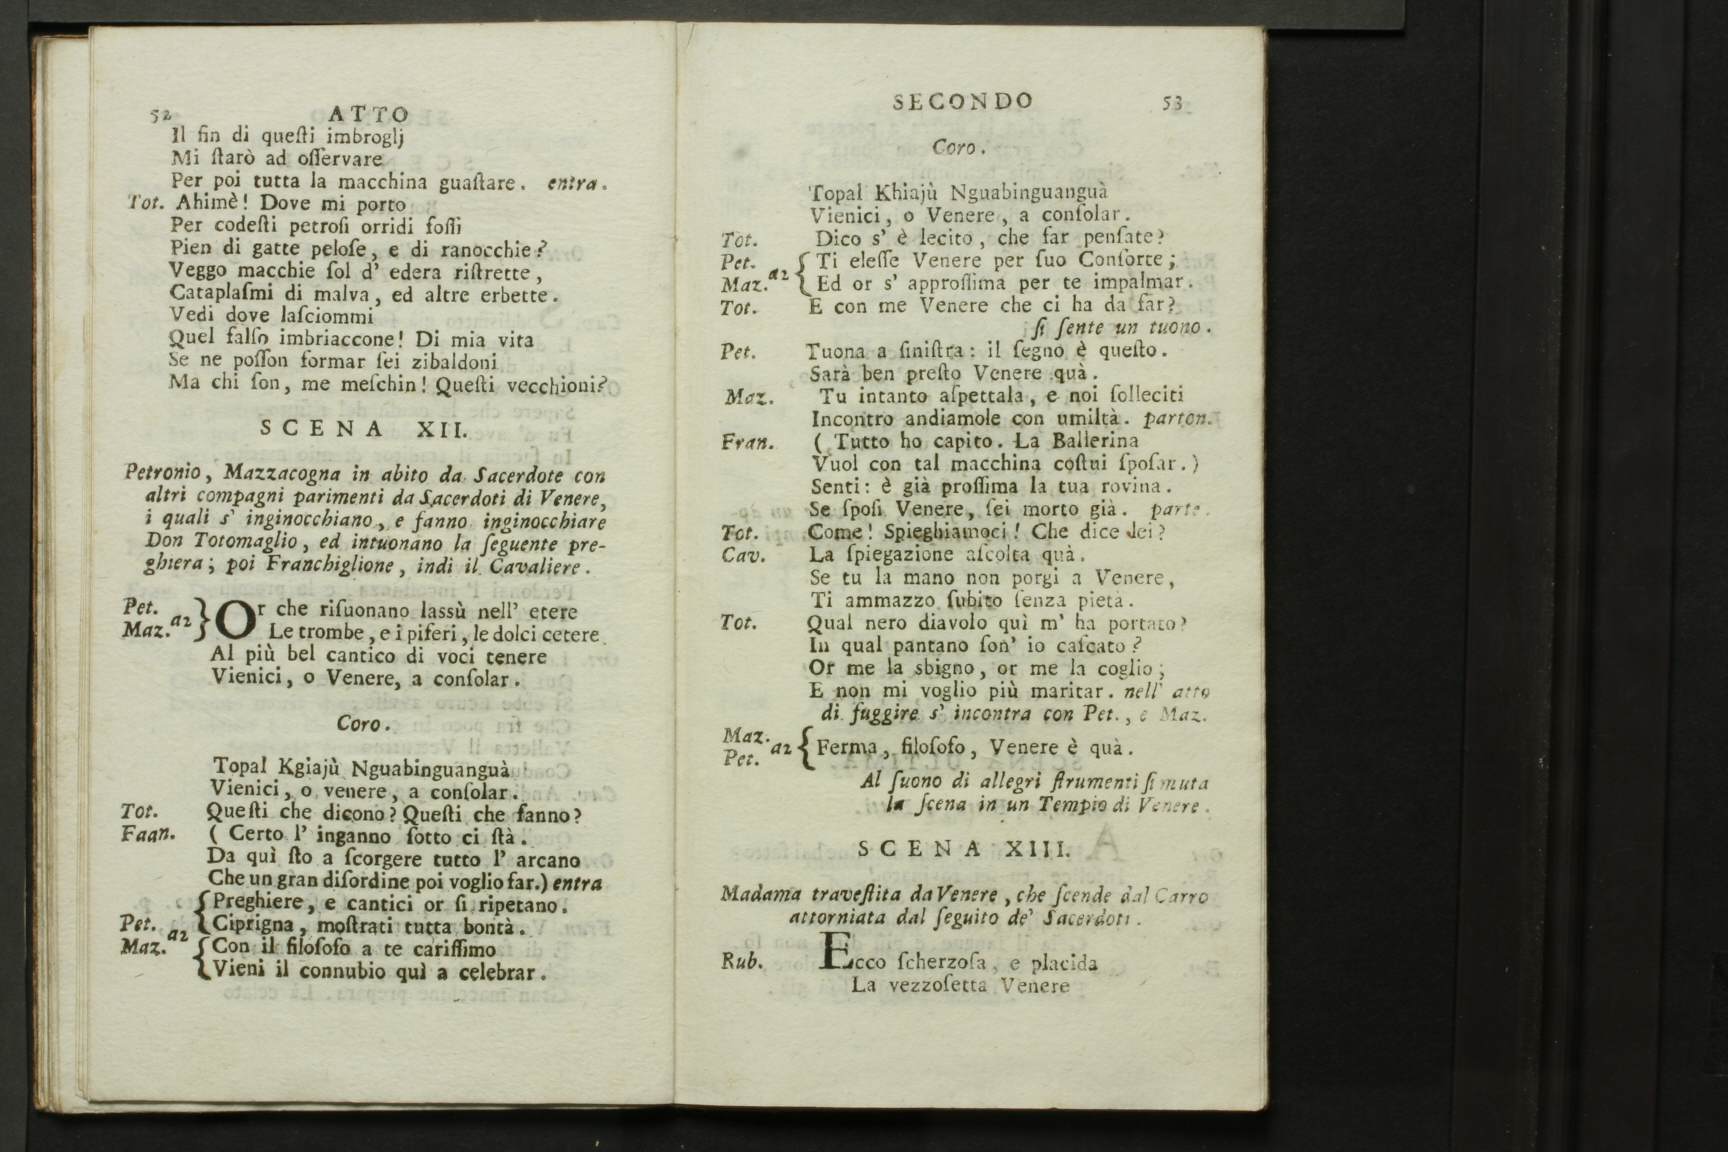 52 ATTO
Il fin di queſti imbroglj
Mi ſtarò ad oſſervare
Per poi tutta la macchina guaſtare. entra.
Tot. Ahimè! Dove mi porto
Per codeſti petroſi orridi foſſi
Pien di gatte peloſe, e di ranocchie?
Veggo macchie ſol d' edera riſtrette,
Cataplaſmi di malva, ed altre erbette.
Vedi dove laſciommi
Quel falſo imbriaccone! Di mia vita
Se ne poſſon formar ſei zibaldoni
Ma chi ſon, me meſchin! Queſti vecchioni?
SCENA XII.
Petronio, Mazzacogna in abito da Sacerdote con
altri compagni parimenti da Sacerdoti di Venere,
i quali s' inginocchiano, e fanno inginocchiare
Don Totomaglio, ed intuonano la ſeguente pre-
ghiera; poi Franchiglione, indi il Cavaliere.
Pet. Or che riſuonano laſsù nell' etere
Maz. a2 Le trombe, e i piferi, le dolci cetere
Al più bel cantico di voci tenere
Vienici, o Venere, a conſolar.
Coro.
Topal Kgiajù Nguabinguanguà
Vienici, o venere, a conſolar.
Tot. Queſti che dicono? Queſti che fanno?
Faan. (Certo l' inganno ſotto ci ſtà.
Da quì ſto a ſcorgere tutto l' arcano
Che un gran diſordine poi voglio far.) entra
Preghiere, e cantici or ſi ripetano.
Pet. Ciprigna, moſtrati tutta bontà.
Maz. a2 Con il filoſofo a te cariſſimo
Vieni il connubio quì a celebrar.
SECONDO 53
Coro.
Topal Khiajù Nguabinguanguà
Vienici, o Venere, a conſolar.
Tot. Dico s' è lecito, che far penſate?
Pet. Ti eleſſe Venere per ſuo Conſorte;
Maz. a2 Ed or s' approſſima per te impalmar.
Tot. E con me Venere che ci ha da far?
ſi ſente un tuono.
Pet. Tuona a ſiniſtra: il ſegno è queſto.
Sarà ben preſto Venere quà.
Maz. Tu intanto aſpettala, e noi ſolleciti
Incontro andiamole con umiltà. parton.
Fran. (Tutto ho capito. La Ballerina
Vuol con tal macchina coſtui ſpoſar.)
Senti: è già proſſima la tua rovina.
Se ſpoſi Venere, ſei morto già. parte.
Tot. Come! Spieghiamoci! Che dice lei?
Cav. La ſpiegazione aſcolta quà.
Se tu la mano non porgi a Venere,
Ti ammazzo ſubito ſenza pietà.
Tot. Qual nero diavolo quì m' ha portato?
In qual pantano ſon' io caſcato?
Or me la sbigno, or me la coglio;
E non mi voglio più maritar. nell' atto
di fuggire s' incontra con Pet., e Maz.
Maz. Pet. a2 Ferma, filoſofo, Venere è quà.
Al ſuono di allegri ſtrumenti ſi muta
la ſcena in un Tempio di Venere.
SCENA XIII.
Madama traveſtita da Venere, che ſcende dal Carro
attorniata dal ſeguito de' Sacerdoti.
Rub. Ecco ſcherzoſa, e placida
La vezzoſetta Venere